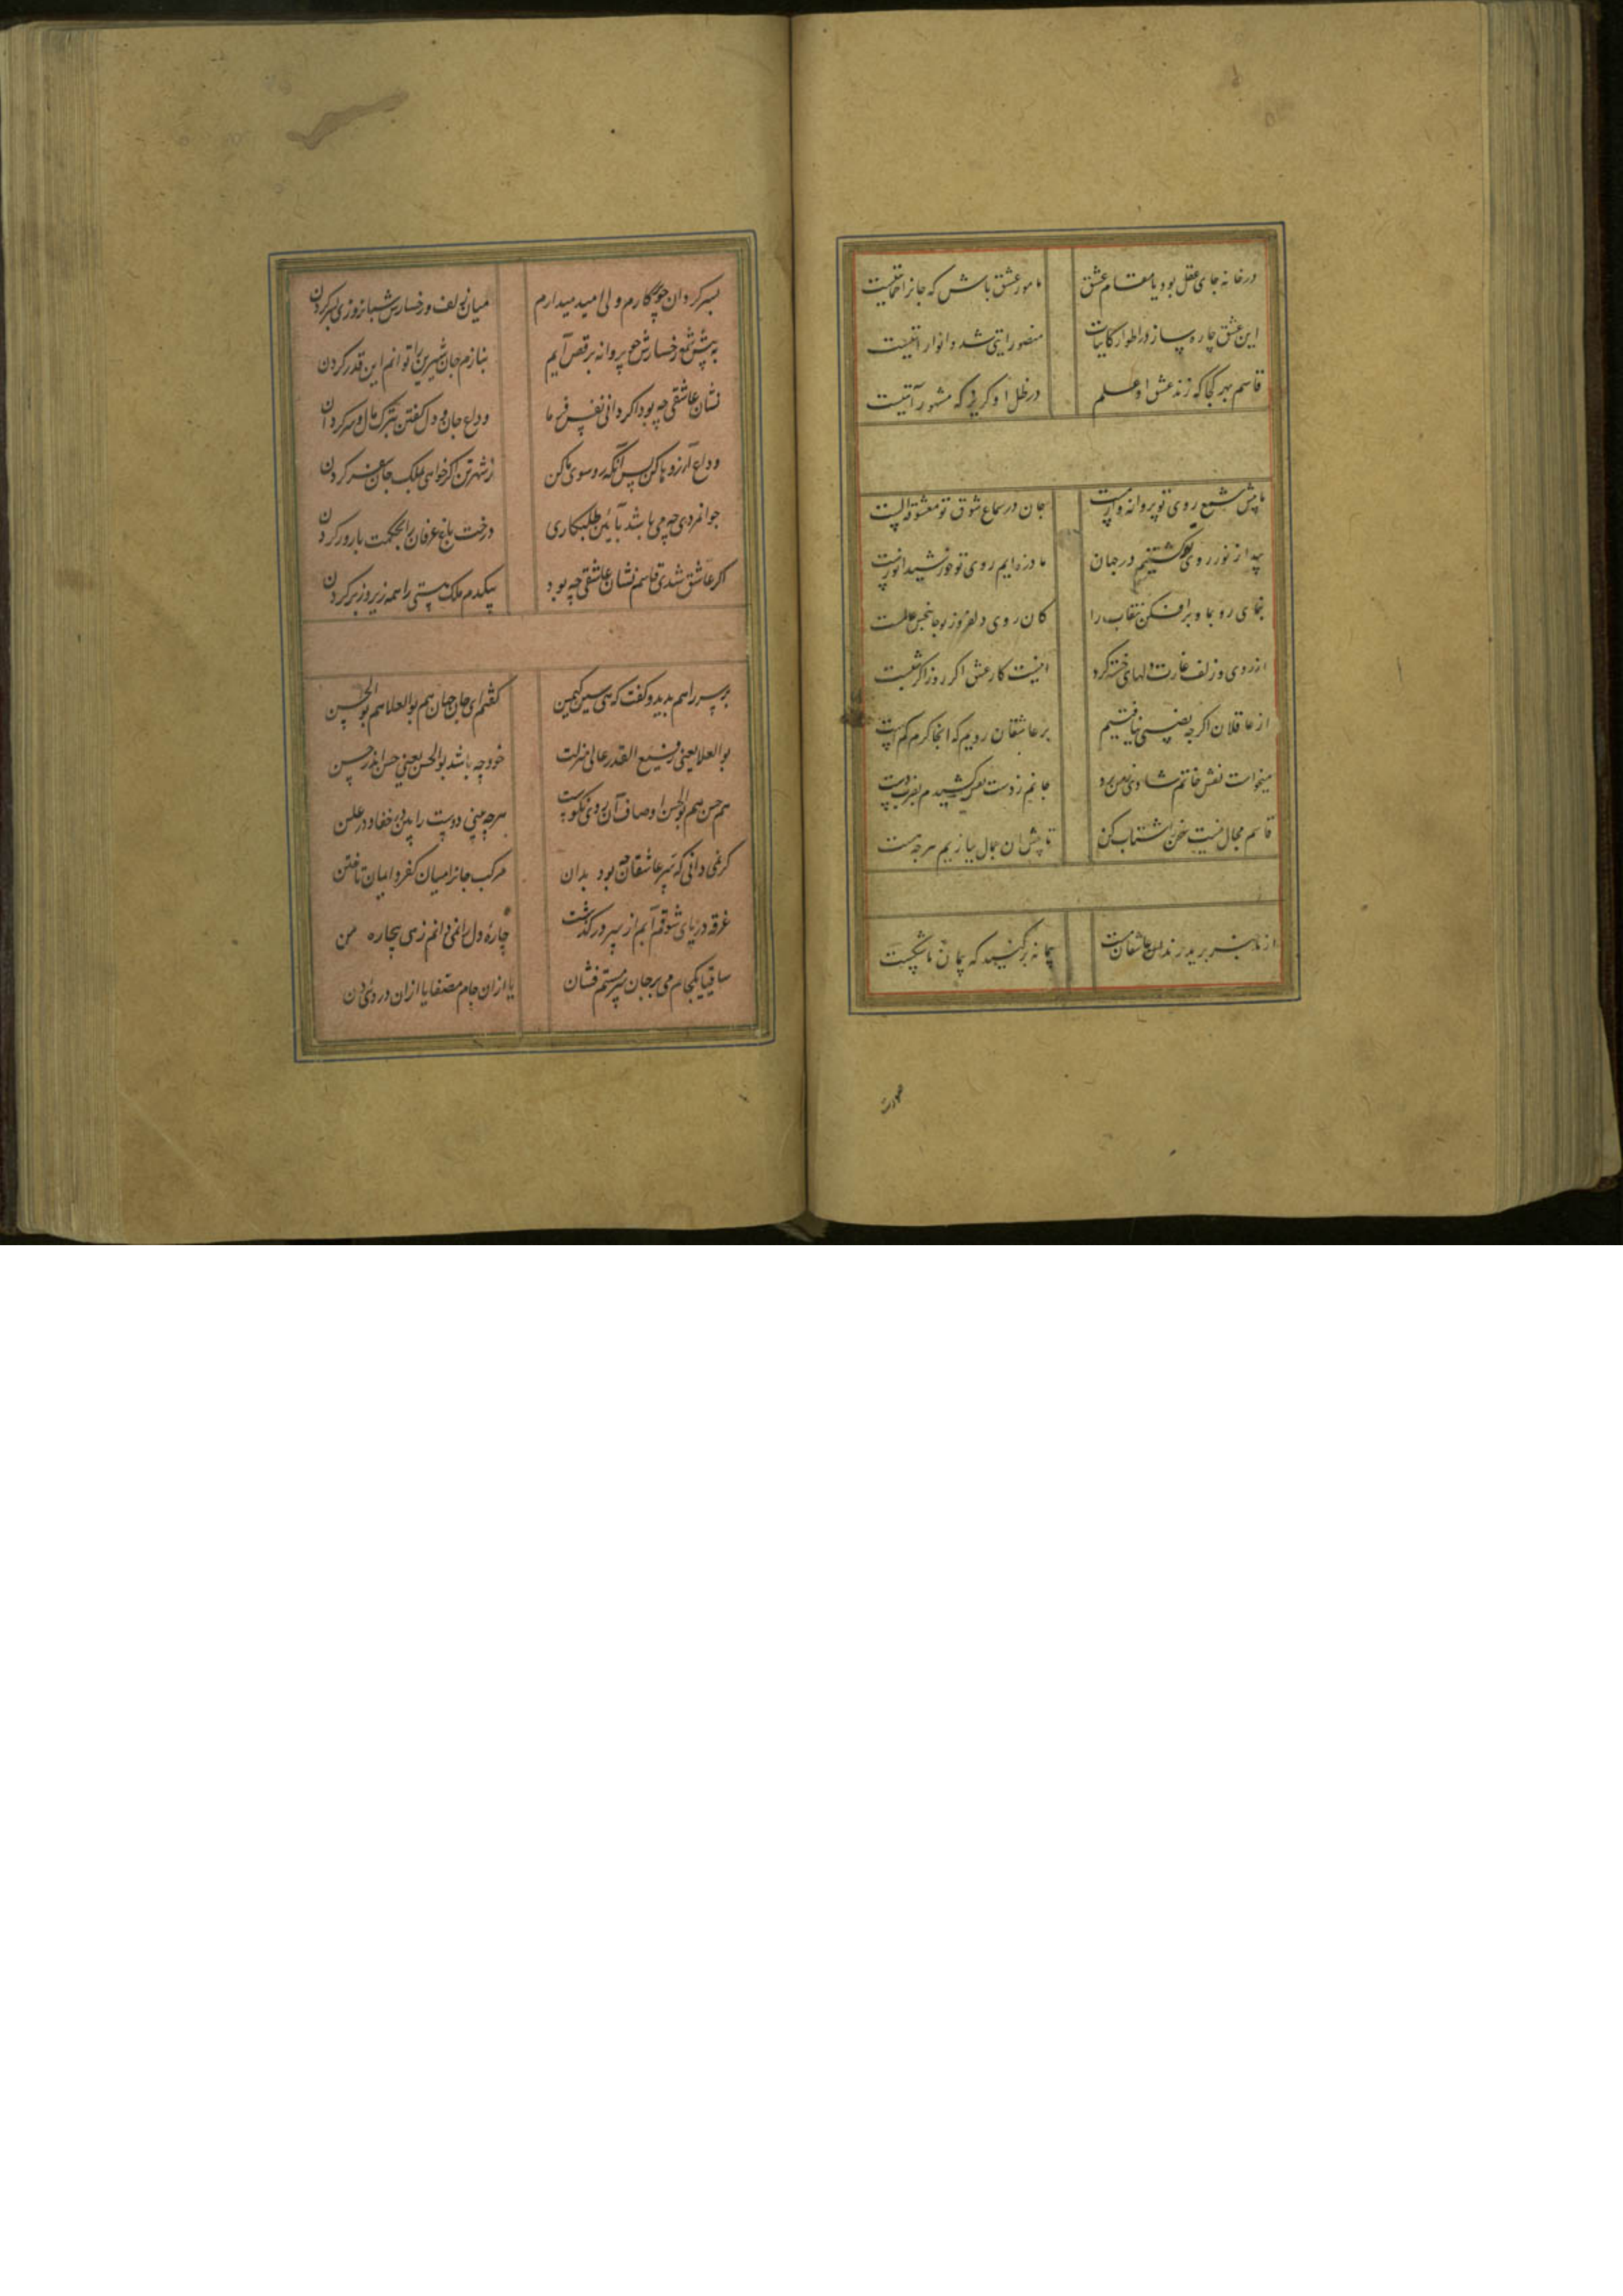 در خانه جای عقل بود یا مقام عشق مامور عشق باش که جانرا حمایتیست
این عشق چاره ساز در اطوار کاینات منصور رایتی شد و انوار
قاسم بهر کجا که زند عشق او علم در ظل او گریز که مشهور آیتیست
ما پیش شمع روی تو پروانه وار مست جان در سماع شوق تو معشوقه الست
پیدا ز نور روی تو گشتیم در جهان ما ذره ایم روی تو خورشید انورست
بنمای رو بما و برافکن نقاب را کان روی دلفروز
از روی و زلف غارت دلهای خسته کرد اینست کار عشق اگر روز اگر شبست
از عاقلان اگر چه نصیبی نیافتیم بر عاشقان رویم که آنجا کرم
میخواست نفس خاتم شادی ز من برد جانم ز دست نفس کشیدم بضرب دست
قاسم مجال نیست سخن را شتاب کن تا پیش آن جمال ببازیم هر چه هست
از ما خبر برید برندان عاشقان مست پیمانه پر کنید که پیمان ما شکست
صورت
بسر گردان چو پرگارم ولی امید میدارم میان زلف و رخسارش شبانروزی بسر کردن
به پیش شمع رخسارش چو پروانه برقص آیم بنازم جان شیرین را توانم این قدر کردن
نشان عاشقی چه بود اگر دانی بفرما وداع جان و دل گفتن بترک مال و سر کردن
وداع آرزوها کن پس آنگه رو سوی ما کن ز شهر تن اگر خواهی بملک جان سفر کردن
جوانمردی چه می باشد بآیین طلبکاری درخت باغ عرفان را بحکمت بارور کردن
اگر عاشق شدی قاسم نشان عاشقی چه بود بیکدم ملک هستی را همه زیر و زبر کردن
پرسید و گفت که هی سین کیمسن گفتم ای جان جهان هم بوالعلا هم بوالحسن
بوالعلا یعنی رفیع القدر عالی منزلت خود چه باشد بوالحسن یعنی حسن اندر حسن
هم حسن هم بوالحسن اوصاف آن روی نکوست هر چه بینی دوست را بین در خفا و در علن
گر نمی دانی که سیر عاشقان چه بود بدان مرکب جانرا میان کفر و ایمان تاختن
غرقه دریای شوقم آبم از سر در گذشت چاره دل را نمی دانم زهی بیچاره من
ساقیا یکجام می بر جان سرمستم فشان یا از آن جام مصفا یا از آن دردی دن